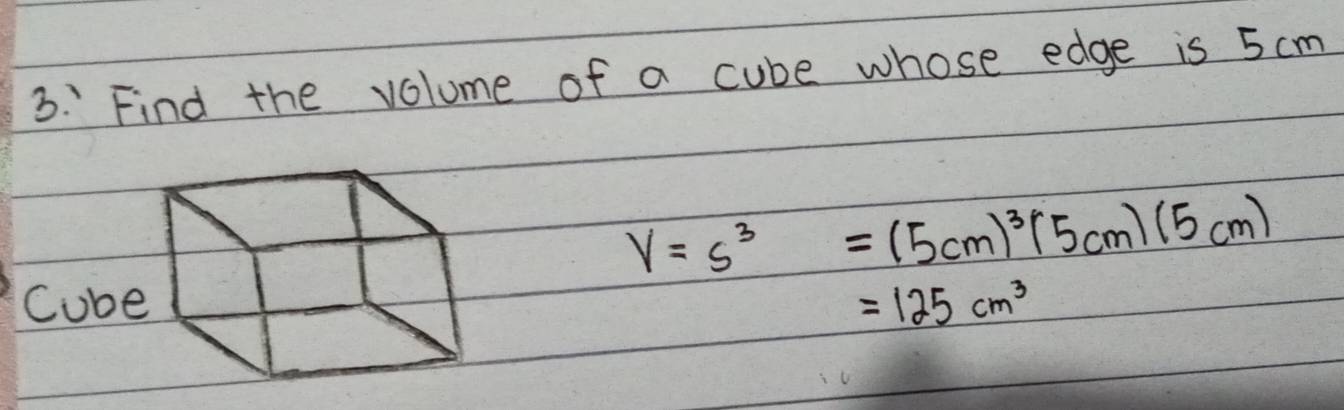 3. Find the volume of a cube whose edge is 5 cm
V = s³ = (5cm)³(5cm)(5cm)
Cube
= 125 cm³